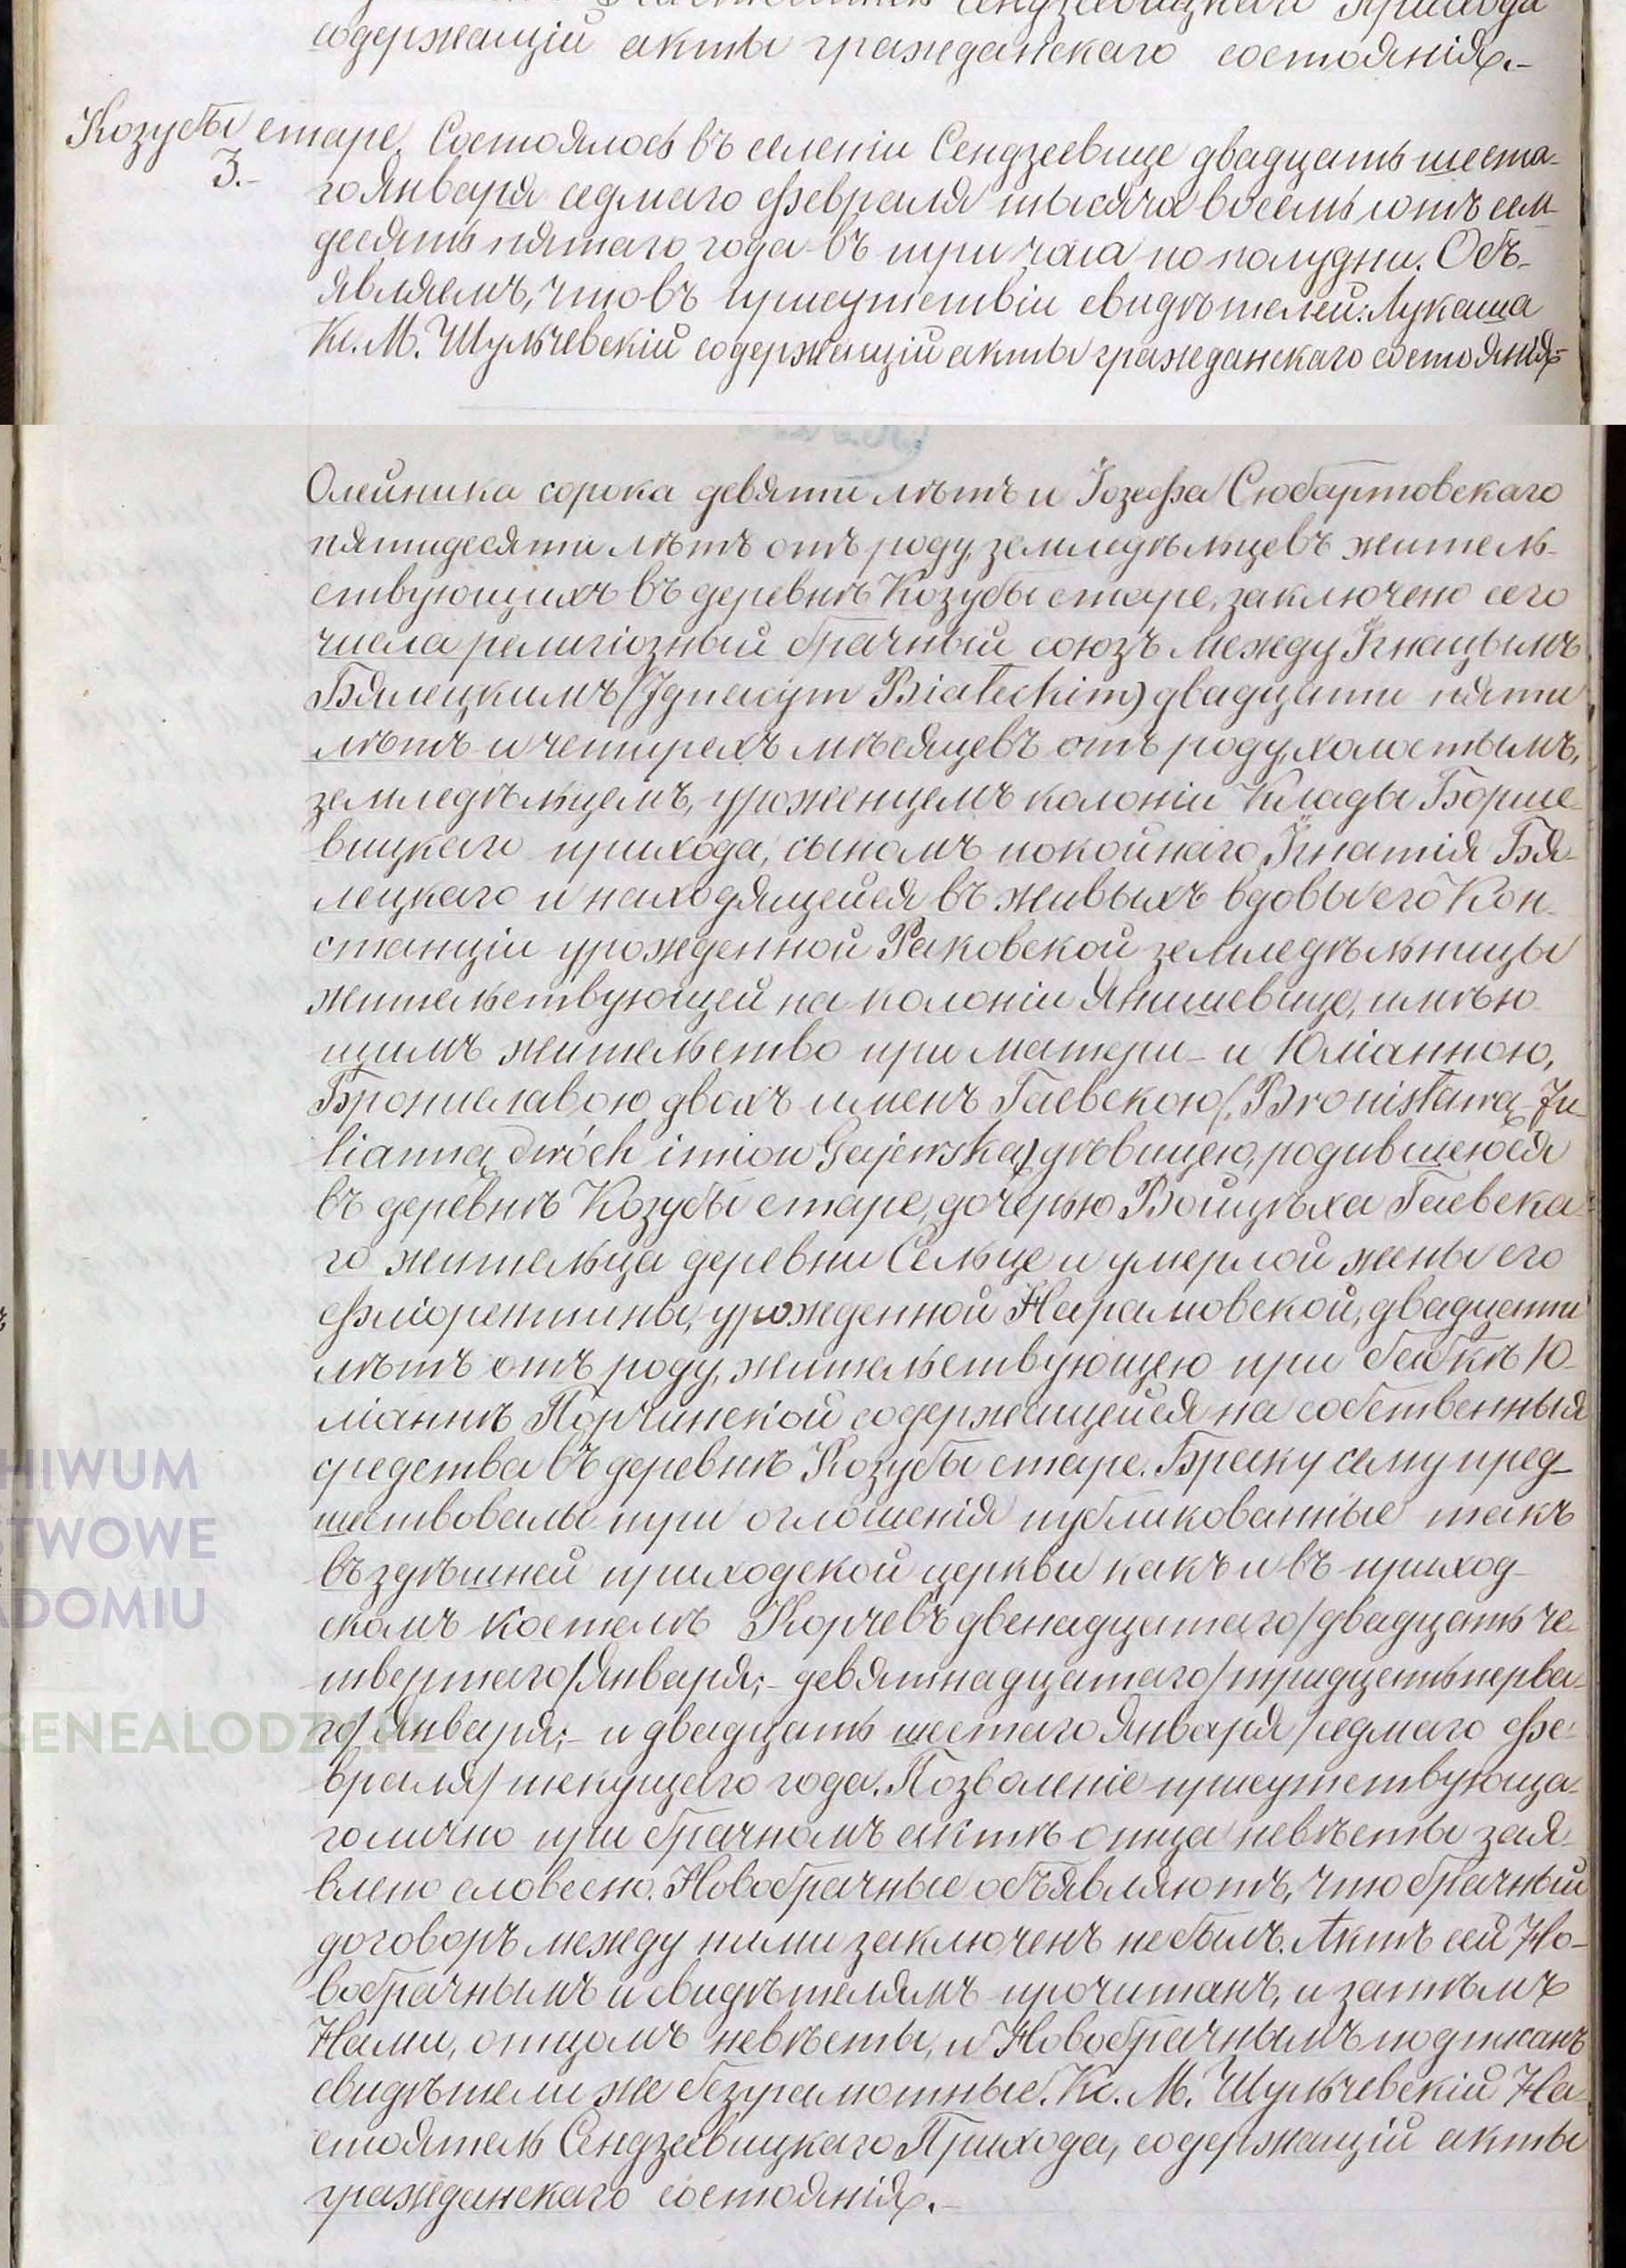 содержащій акты гражданскаго состоянія.-
Козубы старе.
3.-
Состоялось въ селеніи Сендзеевице двадцать шеста-
го Января седмаго февраля тысяча восемь сотъ сем-
десять пятаго года въ три часа по полудни. Объ-
являемъ, что въ присутствіи свидѣтелей: Лукаша
Кс. М. Шульчевскій содержащій акты гражданскаго состоянія-
Олейника сорока девяти лѣтъ и Іозефа Сюбартовскаго
пятидесяти лѣтъ отъ роду, земледѣльцевъ житель-
ствующихъ въ деревнѣ Козубы старе, заключено сего
числа религіозный брачный союзъ между Игнацымъ
Бялецкимъ (Ignacym Białeckim) двадцати пяти
лѣтъ и четырехъ мѣсяцевъ отъ роду, холостымъ,
земледѣльцемъ, уроженцемъ колоніи Клады Борше-
вицкаго прихода, сыномъ покойнаго Игнатія Бя-
лецкаго и находящейся въ живыхъ вдовы его Кон-
станціи урожденной Раковской земледѣльницы
жительствующей на колоніи Янишевице, имѣю-
щимъ жительство при матери - и Юліанною,
Брониславою двохъ именъ Гаевскою (Bronisławą Ju-
lianną dwóch imion Gajewską) дѣвицею, родившеюся
въ деревнѣ Козубы старе, дочерью Войцѣха Гаевска-
го жительца деревни Сельце и умерлой жены его
Флiорентины, урожденной Нарамовской, двадцати
лѣтъ отъ роду, жительствующею при бабкѣ Ю-
ліаннѣ Порчинской содержащейся на собственныя
средства въ деревнѣ Козубы старе. Браку сему пред-
шествовали три оглошенія публикованные такъ
въ здѣшней приходской церкви какъ и въ приход-
скомъ костелѣ Корчевъ двенадцатаго /двадцать че-
твертаго/ Января;- девятнадцатаго /тридцать перва-
го/ Января;- и двадцать шестаго Января /седмаго фе-
враля/ текущаго года. Позволеніе присутствующа-
го лично при брачномъ актѣ отца невѣсты зая-
влено словесно. Новобрачные объявляютъ, что брачный
договоръ между ними заключенъ не былъ. Актъ сей Но-
вобрачнымъ и свидѣтелямъ прочитанъ, и затѣмъ
Нами, отцомъ невѣсты, и Новобрачнымъ подписанъ
свидѣтели же безграмотные. Кс. М. Шульчевскій На-
стоятель Сендзеевицкаго Прихода, содержащій акты
гражданскаго состоянія.-
HIWUM
STWOWE
ADOMIU
GENEALODZY.PL